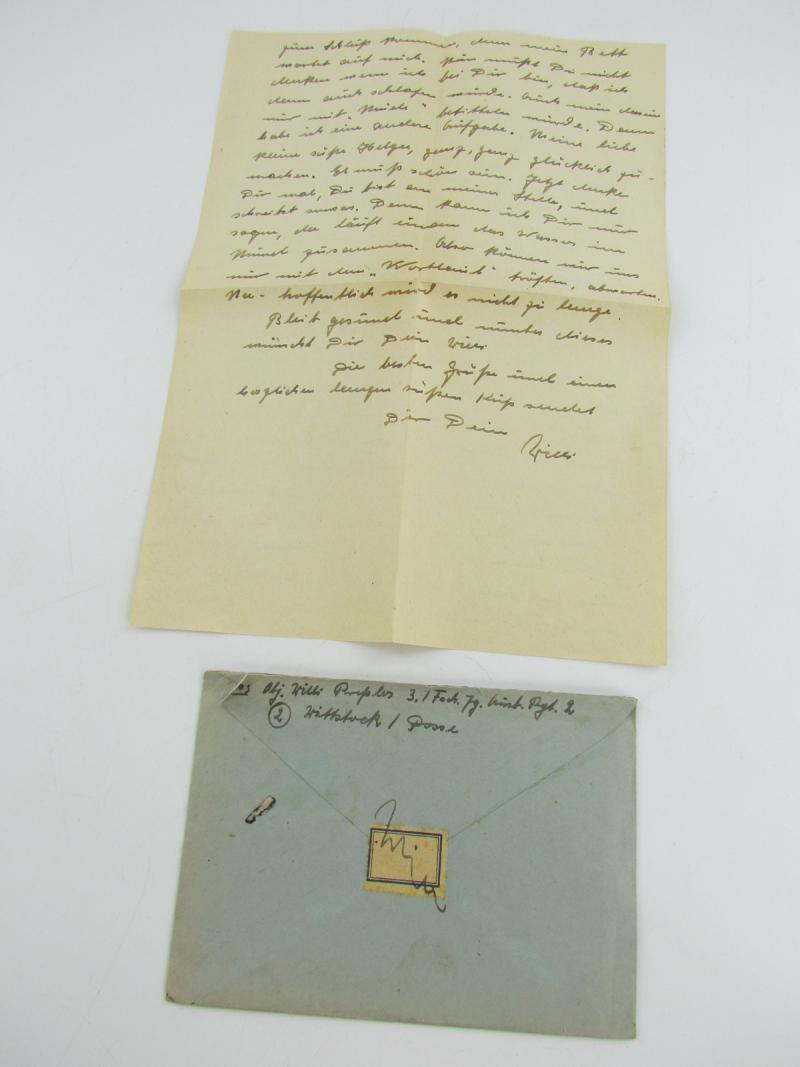 zum Schluß kommen, denn mein Bett
wartet auf mich. Nun mußt Du nicht
denken wenn ich bei Dir bin, daß ich
dann auch schlafen würde. Auch mein
mir mit "Müde" betitteln würde. Dann
habe ich eine andere Aufgabe. Meine liebe
kleine süße Helga, ganz, ganz glücklich zu-
machen. Es muß schön sein. Jetzt denke
Dir mal, Du bist an meiner Stelle, und
schreibst sowas. Dann kann ich Dir nur
sagen, da läuft einem das Wasser im
Mund zusammen. Also können wir uns
nur mit dem "Wortlaut" trösten, abwarten.
Na- hoffentlich wird es nicht zu lange.
Bleib gesund und munter dieses
wünscht Dir Dein Willi
Die besten Grüße und einen
herzlichen langen süßen Kuß sendet
Dir Dein
Willi
Obj. Willi 3./Fsch. Jg. Ausb. Rgt. 2
(2) Wittstock / Dosse